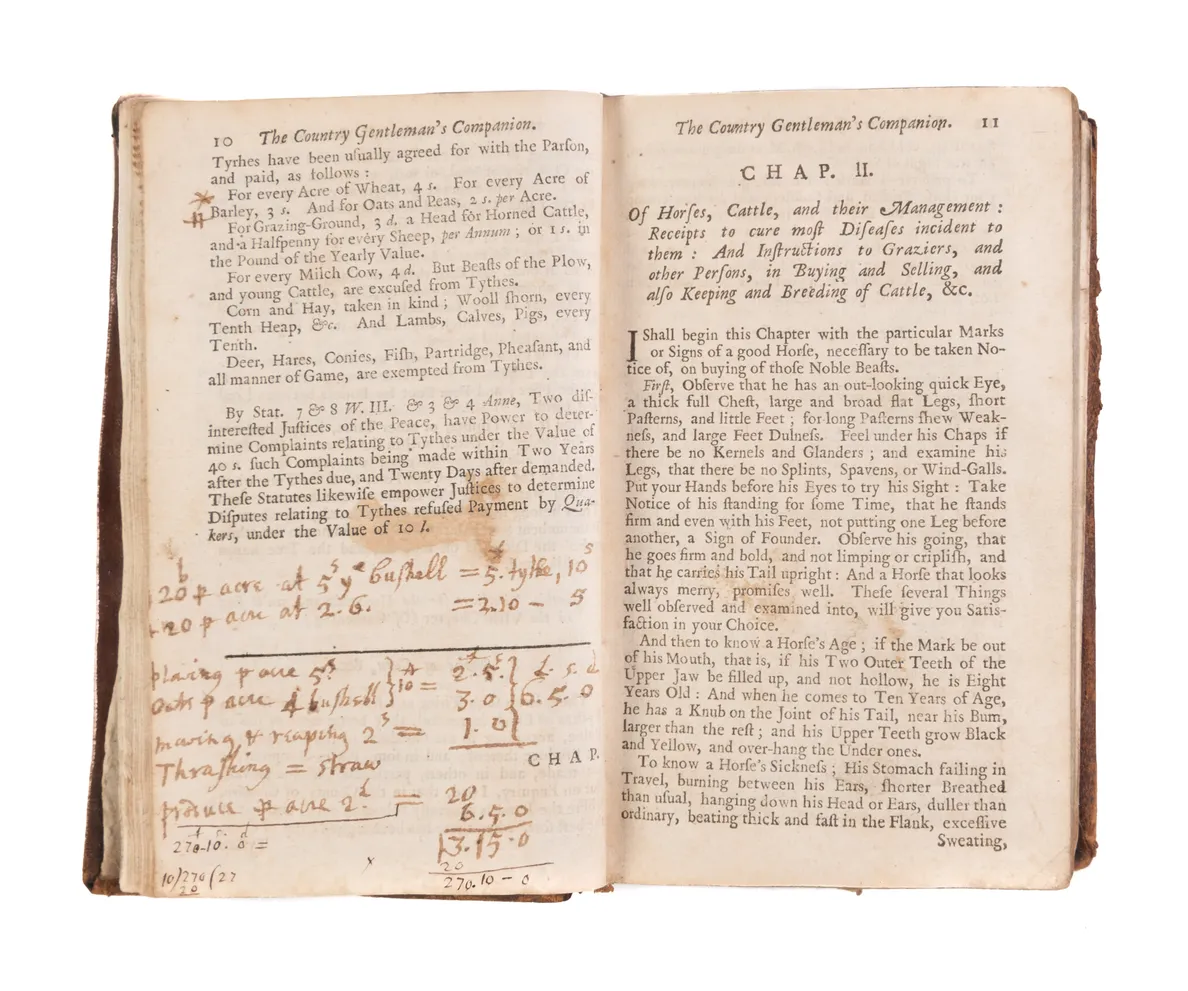 10 The Country Gentleman's Companion.
Tyrhes have been uſually agreed for with the Parſon,
and paid, as follows :
For every Acre of Wheat, 4 s. For every Acre of
Barley, 3 s. And for Oats and Peas, 2 s. per Acre.
For Grazing-Ground, 3 d. a Head for Horned Cattle,
and a Halfpenny for every Sheep, per Annum ; or 1 s. in
the Pound of the Yearly Value.
For every Milch Cow, 4 d. But Beaſts of the Plow,
and young Cattle, are excuſed from Tythes.
Corn and Hay, taken in kind ; Wooll ſhorn, every
Tenth Heap, &c. And Lambs, Calves, Pigs, every
Tenth.
Deer, Hares, Conies, Fiſh, Partridge, Pheaſant, and
all manner of Game, are exempted from Tythes.
By Stat. 7 & 8 W. III. & 3 & 4 Anne, Two diſ-
intereſted Juſtices of the Peace, have Power to deter-
mine Complaints relating to Tythes under the Value of
40 s. ſuch Complaints being made within Two Years
after the Tythes due, and Twenty Days after demanded.
Theſe Statutes likewiſe empower Juſtices to determine
Diſputes relating to Tythes refuſed Payment by Qua-
kers, under the Value of 10 l.
20 p acre at 5 s ye bushell = 5. tythe, 10 s
20 p acre at 2.6. = 2.10 - 5
plaing p acre 5 s 2.5. £. s. d
oats p acre 4 bushell 10 = 3.0 6.5.0
mowing & reaping 2 s = 1.0
Thrashing = straw
CHAP.
produce p acre 2. = 20
6.5.0
270-10. 0 = 13.15.0
10)270(27 20
20 270.10 - 0
The Country Gentleman's Companion. 11
CHAP. II.
Of Horſes, Cattle, and their Management :
Receipts to cure moſt Diſeaſes incident to
them : And Inſtructions to Graziers, and
other Perſons, in Buying and Selling, and
alſo Keeping and Breeding of Cattle, &c.
I Shall begin this Chapter with the particular Marks
or Signs of a good Horſe, neceſſary to be taken No-
tice of, on buying of thoſe Noble Beaſts.
Firſt, Obſerve that he has an out-looking quick Eye,
a thick full Cheſt, large and broad flat Legs, ſhort
Paſterns, and little Feet ; for long Paſterns ſhew Weak-
neſs, and large Feet Dulneſs. Feel under his Chaps if
there be no Kernels and Glanders ; and examine his
Legs, that there be no Splints, Spavens, or Wind-Galls.
Put your Hands before his Eyes to try his Sight : Take
Notice of his ſtanding for ſome Time, that he ſtands
firm and even with his Feet, not putting one Leg before
another, a Sign of Founder. Obſerve his going, that
he goes firm and bold, and not limping or cripliſh, and
that he carries his Tail upright : And a Horſe that looks
always merry, promiſes well. Theſe ſeveral Things
well obſerved and examined into, will give you Satiſ-
faction in your Choice.
And then to know a Horſe's Age ; if the Mark be out
of his Mouth, that is, if his Two Outer Teeth of the
Upper Jaw be filled up, and not hollow, he is Eight
Years Old : And when he comes to Ten Years of Age,
he has a Knub on the Joint of his Tail, near his Bum,
larger than the reſt ; and his Upper Teeth grow Black
and Yellow, and over-hang the Under ones.
To know a Horſe's Sickneſs ; His Stomach failing in
Travel, burning between his Ears, ſhorter Breathed
than uſual, hanging down his Head or Ears, duller than
ordinary, beating thick and faſt in the Flank, exceſſive
Sweating,